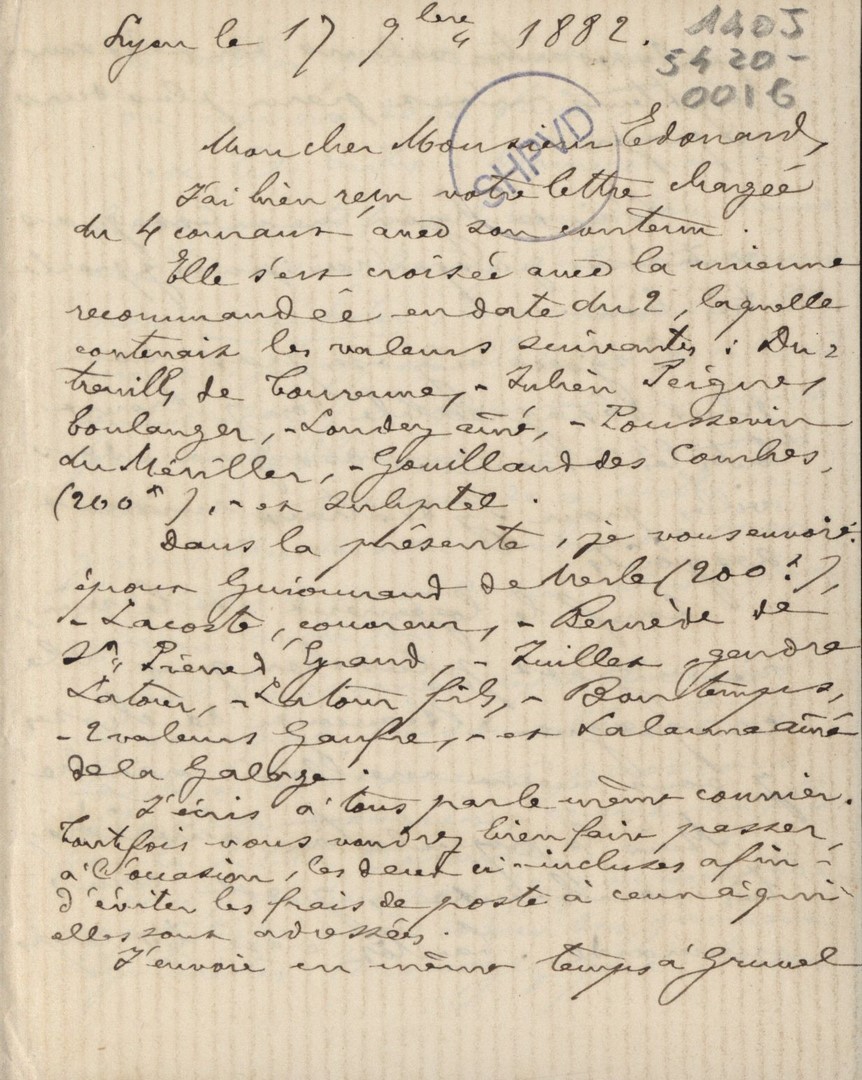 Lyon le 17 9bre 1882.
1405
5420-
0016
SHPVD
Mon cher Monsieur Edouard,
J'ai bien reçu votre lettre chargée
du 4 courant avec son contenu.
Elle s'est croisée avec la mienne
recommandée en date du 2, laquelle
contenait les valeurs suivantes : Du-
treuilh de Tourenne, - Julien Peigney
boulanger, - Londey aîné, - Poussevin
du Mériller, - Gouillaud des Combes,
(200 f), - et
Dans la présente, je vous envoie :
époux Guiounaud de Merle (200 f),
- Lacoste, couvreur, - Bernède de
St Pierre d'Eyraud, - Juillet, gendre
Latour, - Latour fils, - Bontemps,
- 2 valeurs Gaufre, - et Lalanne aîné
de la Galage.
J'écris à tous par le même courrier.
Toutefois vous voudrez bien faire passer,
à l'occasion, les deux ci-incluses afin
d'éviter les frais de poste à ceux à qui
elles sont adressées.
J'envoie en même temps à Gruvel